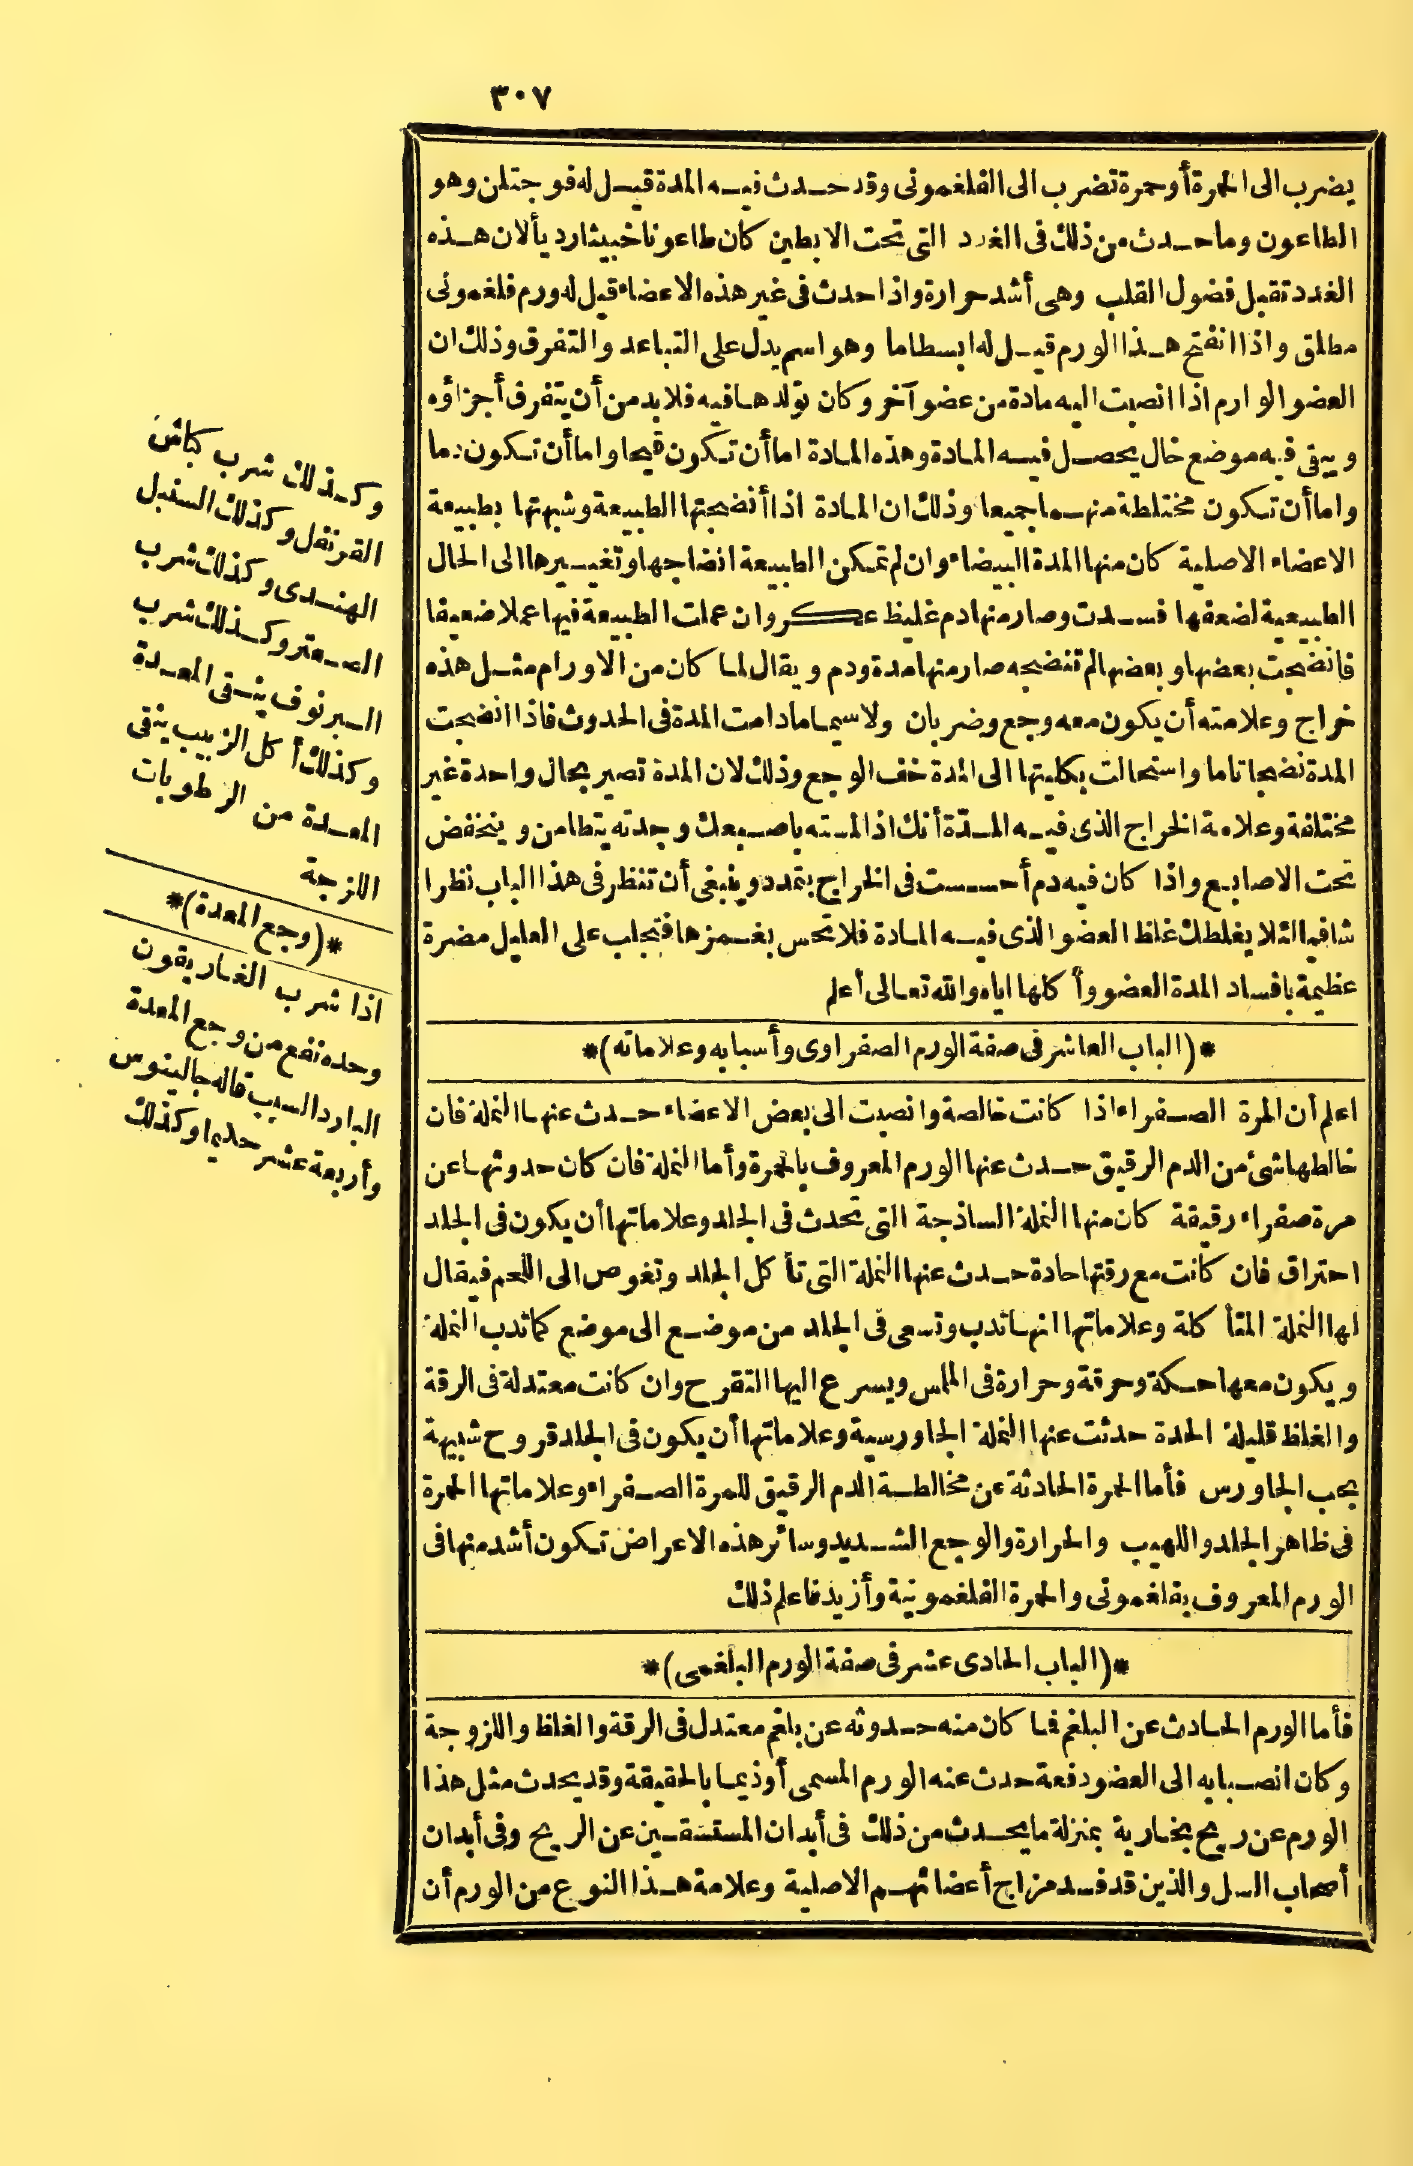 ٣٠٧
يضرب الى الحمرة أو حمرة تضرب الى الفلغمونى وقد حدث فيه المدة قيل له فوجتلن وهو
الطاعون وما حدث من ذلك فى الغدد التى تحت الابطين كان طاعونا خبيثا رديا لان هذه
الغدد تقبل فضول القلب وهى أشد حرارة واذا حدث فى غير هذه الاعضاء قيل له ورم فلغمونى
مطلق واذا انفتح هذا الورم قيل له ابسطاما وهو اسم يدل على التباعد والتفرق وذلك ان
العضو الوارم اذا انصبت اليه مادة من عضو آخر وكان تولدها فيه فلا بد من أن يتفرق أجزاؤه
ويبقى فيه موضع خال يحصل فيه المادة وهذه المادة اما أن تكون قيحا واما أن تكون دما
واما أن تكون مختلطة منهما جميعا وذلك ان المادة اذا أنضجتها الطبيعة وشبهتها بطبيعة
الاعضاء الاصلية كان منها المدة البيضاء وان لم تمكن الطبيعة انضاجها وتغييرها الى الحال
الطبيعية لضعفها فسدت وصار منها دم غليظ عكر وان عملت الطبيعة فيها عملا ضعيفا
فانضجت بعضها وبعضها لم تنضجه صار منها مدة ودم ويقال لما كان من الاورام مثل هذه
خراج وعلامته أن يكون معه وجع وضربان ولا سيما مادامت المدة فى الحدوث فاذا انضجت
المدة نضجا تاما واستحالت بكليتها الى المدة خف الوجع وذلك لان المدة تصير بحال واحدة غير
مختلفة وعلامة الخراج الذى فيه المدة أنك اذا لمسته باصبعك وجدته يتطامن وينخفض
تحت الاصابع واذا كان فيه دم أحسست فى الخراج بتمدد وينبغى أن تنظر فى هذا الباب نظرا
شافيا لئلا يغلطك غلظ العضو الذى فيه المادة فلا تحس بغمزها فتجلب على العليل مضرة
عظيمة بافساد المدة العضو وأكلها اياه والله تعالى أعلم
*(الباب العاشر فى صفة الورم الصفراوى وأسبابه وعلاماته)*
اعلم أن المرة الصفراء اذا كانت خالصة وانصبت الى بعض الاعضاء حدث عنها النملة فان
خالطها شئ من الدم الرقيق حدث عنها الورم المعروف بالحمرة وأما النملة فان كان حدوثها عن
مرة صفراء رقيقة كان منها النملة الساذجة التى تحدث فى الجلد وعلاماتها أن يكون فى الجلد
احتراق فان كانت مع رقتها حادة حدث عنها النملة التى تأكل الجلد وتغوص الى اللحم فيقال
لها النملة المتأكلة وعلاماتها انها تدب وتسعى فى الجلد من موضع الى موضع كما تدب النملة
ويكون معها حكة وحرقة وحرارة فى الملمس ويسرع اليها التقرح وان كانت معتدلة فى الرقة
والغلظ قليلة الحدة حدثت عنها النملة الجاورسية وعلاماتها أن يكون فى الجلد قروح شبيهة
بحب الجاورس فأما الحمرة الحادثة عن مخالطة الدم الرقيق للمرة الصفراء وعلاماتها الحمرة
فى ظاهر الجلد واللهيب والحرارة والوجع الشديد وسائر هذه الاعراض تكون أشد منها فى
الورم المعروف بفلغمونى والحمرة الفلغمونية وأزيد فاعلم ذلك
*(الباب الحادى عشر فى صفة الورم البلغمى)*
فأما الورم الحادث عن البلغم فما كان منه حدوثه عن بلغم معتدل فى الرقة والغلظ واللزوجة
وكان انصبابه الى العضو دفعة حدث عنه الورم المسمى أوذيما بالحقيقة وقد يحدث مثل هذا
الورم عن ريح بخارية بمنزلة ما يحدث من ذلك فى أبدان المستسقين عن الريح وفى أبدان
أصحاب السل والذين قد فسد مزاج أعضائهم الاصلية وعلامة هذا النوع من الورم أن
وكذلك شرب كباش
القرنفل وكذلك السنبل
الهندى وكذلك شرب
الصعتر وكذلك شرب
البرنوف ينقى المعدة
وكذلك أكل الزبيب ينقى
المعدة من الرطوبات
اللزجة
*(وجع المعدة)*
اذا شرب الغاريقون
وحده نفع من وجع المعدة
البارد السبب قاله جالينوس
وأربعة عشر حكيما وكذلك